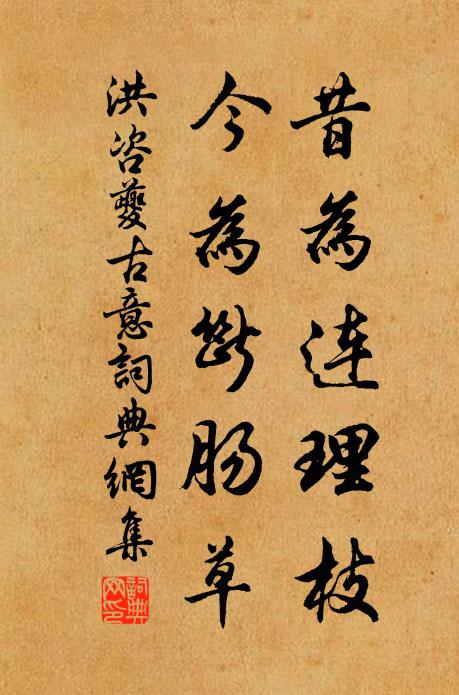 昔為連理枝
今為斷腸草
洪咨夔古意詞典網集
詞典網印